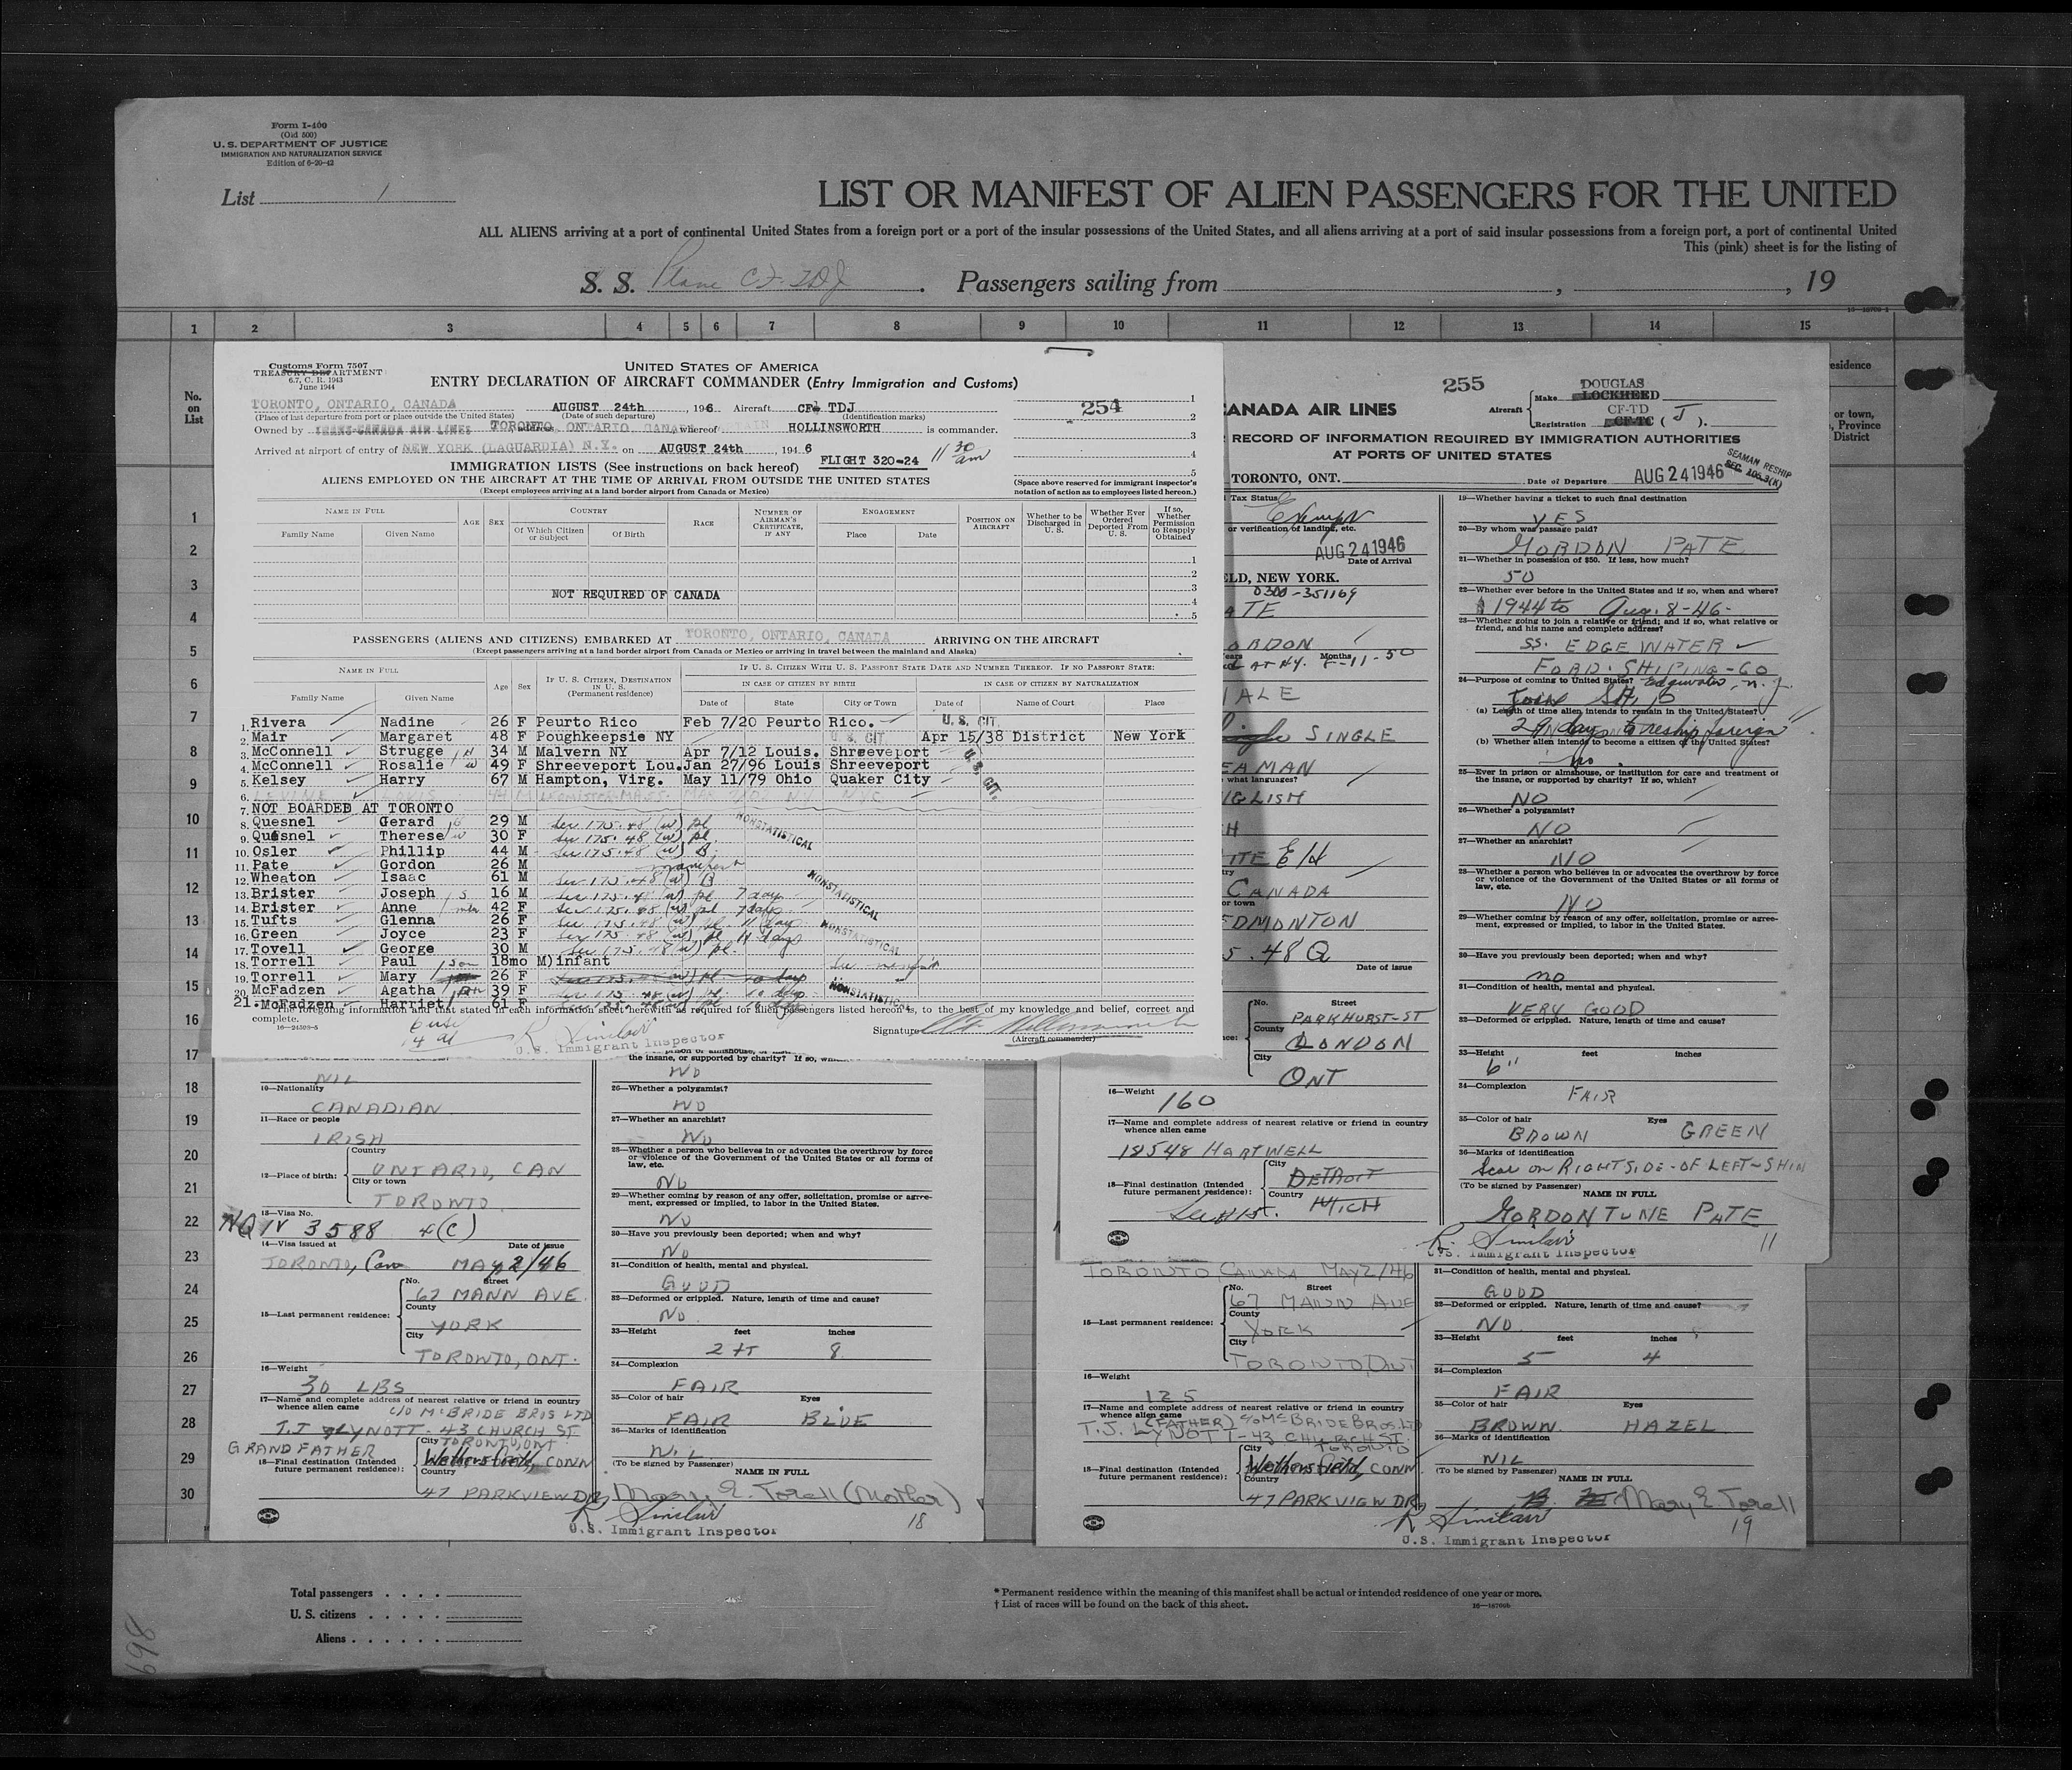 Form I-400
(Old 500)
U. S. DEPARTMENT OF JUSTICE
IMMIGRATION AND NATURALIZATION SERVICE
Edition of 6-20-42
List 1
LIST OR MANIFEST OF ALIEN PASSENGERS FOR THE UNITED
ALL ALIENS arriving at a port of continental United States from a foreign port or a port of the insular possessions of the United States, and all aliens arriving at a port of said insular possessions from a foreign port, a port of continental United
This (pink) sheet is for the listing of
S. S. Plane CF-TDJ. Passengers sailing from , , 19
1 2 3 4 5 6 7 8 9 10 11 12 13 14 15
No. on List
Customs Form 7507
TREASURY DEPARTMENT
6.7, C. R. 1943
June 1944
UNITED STATES OF AMERICA
ENTRY DECLARATION OF AIRCRAFT COMMANDER (Entry Immigration and Customs)
254
TORONTO, ONTARIO, CANADA AUGUST 24th , 1946 Aircraft CF- TDJ
(Place of last departure from port or place outside the United States) (Date of such departure) (Identification marks)
Owned by TRANS-CANADA AIR LINES TORONTO, ONTARIO, CANADA whereof HOLLINSWORTH is commander.
Arrived at airport of entry of NEW YORK (LAGUARDIA) N.Y. on AUGUST 24th 194 6
FLIGHT 320-24 11 30 am
IMMIGRATION LISTS (See instructions on back hereof)
ALIENS EMPLOYED ON THE AIRCRAFT AT THE TIME OF ARRIVAL FROM OUTSIDE THE UNITED STATES
(Except employees arriving at a land border airport from Canada or Mexico)
(Space above reserved for immigrant inspector's notation of action as to employees listed hereon.)
NAME IN FULL AGE SEX COUNTRY RACE NUMBER OF AIRMAN'S CERTIFICATE, IF ANY ENGAGEMENT POSITION ON AIRCRAFT Whether to be Discharged in U. S. Whether Ever Ordered Deported From U. S. If so, Whether Permission to Reapply Obtained
Family Name Given Name Of Which Citizen or Subject Of Birth Place Date
NOT REQUIRED OF CANADA
PASSENGERS (ALIENS AND CITIZENS) EMBARKED AT TORONTO, ONTARIO, CANADA ARRIVING ON THE AIRCRAFT
(Except passengers arriving at a land border airport from Canada or Mexico or arriving in travel between the mainland and Alaska)
NAME IN FULL Age Sex IF U. S. CITIZEN, DESTINATION IN U. S. (Permanent residence) IF U. S. CITIZEN WITH U. S. PASSPORT STATE DATE AND NUMBER THEREOF. IF NO PASSPORT STATE:
IN CASE OF CITIZEN BY BIRTH IN CASE OF CITIZEN BY NATURALIZATION
Family Name Given Name Date of State City or Town Date of Name of Court Place
1. Rivera Nadine 26 F Peurto Rico Feb 7/20 Peurto Rico. U. S. CIT.
2. Mair Margaret 48 F Poughkeepsie NY U. S. CIT. Apr 15/38 District New York
3. McConnell Strugge 34 M Malvern NY Apr 7/12 Louis. Shreeveport
4. McConnell Rosalie 49 F Shreeveport Lou. Jan 27/96 Louis Shreeveport U. S. CIT.
5. Kelsey Harry 67 M Hampton, Virg. May 11/79 Ohio Quaker City
6.
7. NOT BOARDED AT TORONTO
8. Quesnel Gerard 29 M Sec 175.48 (w) pl NONSTATISTICAL
9. Quesnel Therese 30 F Sec 175.48 (w) pl.
10. Osler Phillip 44 M Sec 175.48 (w) B.
11. Pate Gordon 26 M manifest
12. Wheaton Isaac 61 M Sec 175.48 (w) B
13. Brister Joseph 16 M Sec 175.48 (w) pl 7 day NONSTATISTICAL
14. Brister Anne 42 F Sec 175.48 (w) pl 7 days
15. Tufts Glenna 26 F Sec 175.48 (w) pl. 11 days
16. Green Joyce 23 F Sec 175.48 (w) pl 11 days NONSTATISTICAL
17. Tovell George 30 M Sec 175.48 (w) pl.
18. Torrell Paul son 18mo M)infant
19. Torrell Mary 26 F
20. McFadzen Agatha 39 F Sec 175.48 (w) pl. 10 days NONSTATISTICAL
21. McFadzen Harriet 61 F Sec 175.48 (w) pl 10 days
The foregoing information and that stated in each information sheet herewith as required for alien passengers listed hereon is, to the best of my knowledge and belief, correct and complete.
R Sinclair
U.S. Immigrant Inspector
Signature
(Aircraft commander)
255
CANADA AIR LINES
Aircraft Make DOUGLAS LOCKHEED
Registration CF-TD CF-TC ( J ).
RECORD OF INFORMATION REQUIRED BY IMMIGRATION AUTHORITIES
AT PORTS OF UNITED STATES
TORONTO, ONT. Date of Departure AUG 24 1946
SEAMAN RESHIP
Tax Status Exempt
or verification of landing, etc.
AUG 24 1946
Date of Arrival
ELD, NEW YORK.
0300-351169
ATE
ORDON
ALE
SINGLE
EAMAN
what languages?
GLISH
CANADA
or town
EDMONTON
5.48 Q
Date of issue
No. Street
PARKHURST-ST
County
LONDON
City
ONT
16—Weight
160
17—Name and complete address of nearest relative or friend in country whence alien came
18548 HARTWELL
18—Final destination (Intended future permanent residence): City DETROIT
Country MICH
19—Whether having a ticket to such final destination
YES
20—By whom was passage paid?
GORDON PATE
21—Whether in possession of $50. If less, how much?
50
22—Whether ever before in the United States and if so, when and where?
1944 to Aug. 8-46-
23—Whether going to join a relative or friend; and if so, what relative or friend, and his name and complete address?
SS. EDGEWATER
FORD. SHIPING-CO
Edgewater, N.J.
24—Purpose of coming to United States?
Join Ship
(a) Length of time alien intends to remain in the United States?
(b) Whether alien intends to become a citizen of the United States?
No
25—Ever in prison or almshouse, or institution for care and treatment of the insane, or supported by charity? If so, which?
NO
26—Whether a polygamist?
NO
27—Whether an anarchist?
NO
28—Whether a person who believes in or advocates the overthrow by force or violence of the Government of the United States or all forms of law, etc.
NO
29—Whether coming by reason of any offer, solicitation, promise or agreement, expressed or implied, to labor in the United States.
30—Have you previously been deported; when and why?
no
31—Condition of health, mental and physical.
VERY GOOD
32—Deformed or crippled. Nature, length of time and cause?
33—Height feet inches
6"
34—Complexion
FAIR
35—Color of hair Eyes
BROWN GREEN
36—Marks of identification
Scar on RIGHT SIDE-OF LEFT-SHIN
(To be signed by Passenger) NAME IN FULL
GORDON TUNE PATE
R. Sinclair 11
U.S. Immigrant Inspector
NIL
10—Nationality
CANADIAN
11—Race or people
IRISH
12—Place of birth: Country
ONTARIO, CAN
City or town
TORONTO
13—Visa No.
NQIV 3588 4(C)
14—Visa issued at Date of issue
TORONTO, Can MAY 2/46
15—Last permanent residence: No. Street
67 MANN AVE.
County
YORK
City
TORONTO, ONT.
16—Weight
30 LBS
17—Name and complete address of nearest relative or friend in country whence alien came
C/O McBRIDE BROS LTD
T.J LYNOTT. 43 CHURCH ST
GRANDFATHER TORONTO, ONT
18—Final destination (Intended future permanent residence): City Wethersfield, CONN
Country
47 PARKVIEW DR
the insane, or supported by charity?
NO
26—Whether a polygamist?
NO
27—Whether an anarchist?
NO
28—Whether a person who believes in or advocates the overthrow by force or violence of the Government of the United States or all forms of law, etc.
NO
29—Whether coming by reason of any offer, solicitation, promise or agreement, expressed or implied, to labor in the United States.
NO
30—Have you previously been deported; when and why?
NO
31—Condition of health, mental and physical.
GOOD
32—Deformed or crippled. Nature, length of time and cause?
NO.
33—Height feet inches
2 FT 8
34—Complexion
FAIR
35—Color of hair Eyes
FAIR BLUE
36—Marks of identification
NIL
(To be signed by Passenger) NAME IN FULL
Mary E. Torell (Mother)
R Sinclair 18
U.S. Immigrant Inspector
TORONTO, CANADA MAY 2/46
No. Street
67 MANN AVE
County
15—Last permanent residence: YORK
City
TORONTO, ONT
16—Weight
125
17—Name and complete address of nearest relative or friend in country whence alien came
(FATHER) c/o McBRIDE BROS. LTD
T.J. LYNOTT-43 CHURCH ST.
TORONTO
18—Final destination (Intended future permanent residence): City Wethersfield, CONN
Country
47 PARKVIEW DR
31—Condition of health, mental and physical.
GOOD
32—Deformed or crippled. Nature, length of time and cause?
NO.
33—Height feet inches
5 4
34—Complexion
FAIR
35—Color of hair Eyes
BROWN HAZEL
36—Marks of identification
NIL
(To be signed by Passenger) NAME IN FULL
Mary E Torell
R Sinclair 19
U.S. Immigrant Inspector
Total passengers
U. S. citizens
Aliens
* Permanent residence within the meaning of this manifest shall be actual or intended residence of one year or more.
† List of races will be found on the back of this sheet.
698